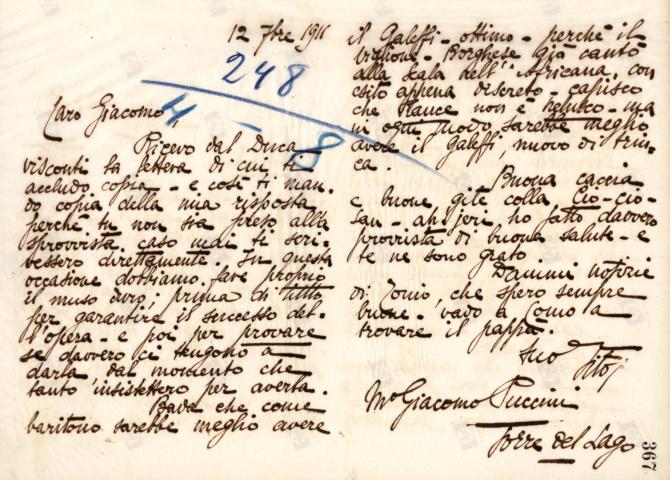 12 7bre 1911
248
4
8
Caro Giacomo
Ricevo dal Duca
Visconti la lettera di cui ti
accludo copia - e così ti man-
do copia della mia risposta
perchè tu non sia preso alla
sprovvista caso mai ti scri-
vessero direttamente. In questa
occasione dobbiamo fare proprio
il muso duro; prima di tutto
per garantire il successo del-
l'opera - e poi per provare
se davvero ci tengono a
darla dal momento che
tanto insistettero per averla.
Bada che come
baritono sarebbe meglio avere
il Galeffi - ottimo - perchè il
Borghese già cantò
alla Scala nell'Africana, con
esito appena discreto - capisco
che Rance non è Nelusco - ma
in ogni modo sarebbe meglio
avere il Galeffi, nuovo di trin-
ca.
Buona caccia
e buone gite colla Cio-Cio-
San - ah! jeri ho fatto davvero
provvista di buona salute - e
te ne sono grato.
Dammi notizie
di Tonio, che spero sempre
buone - vado a Como a
trovare il pappà.
Tuo Tito
Mo Giacomo Puccini
Torre del Lago
367